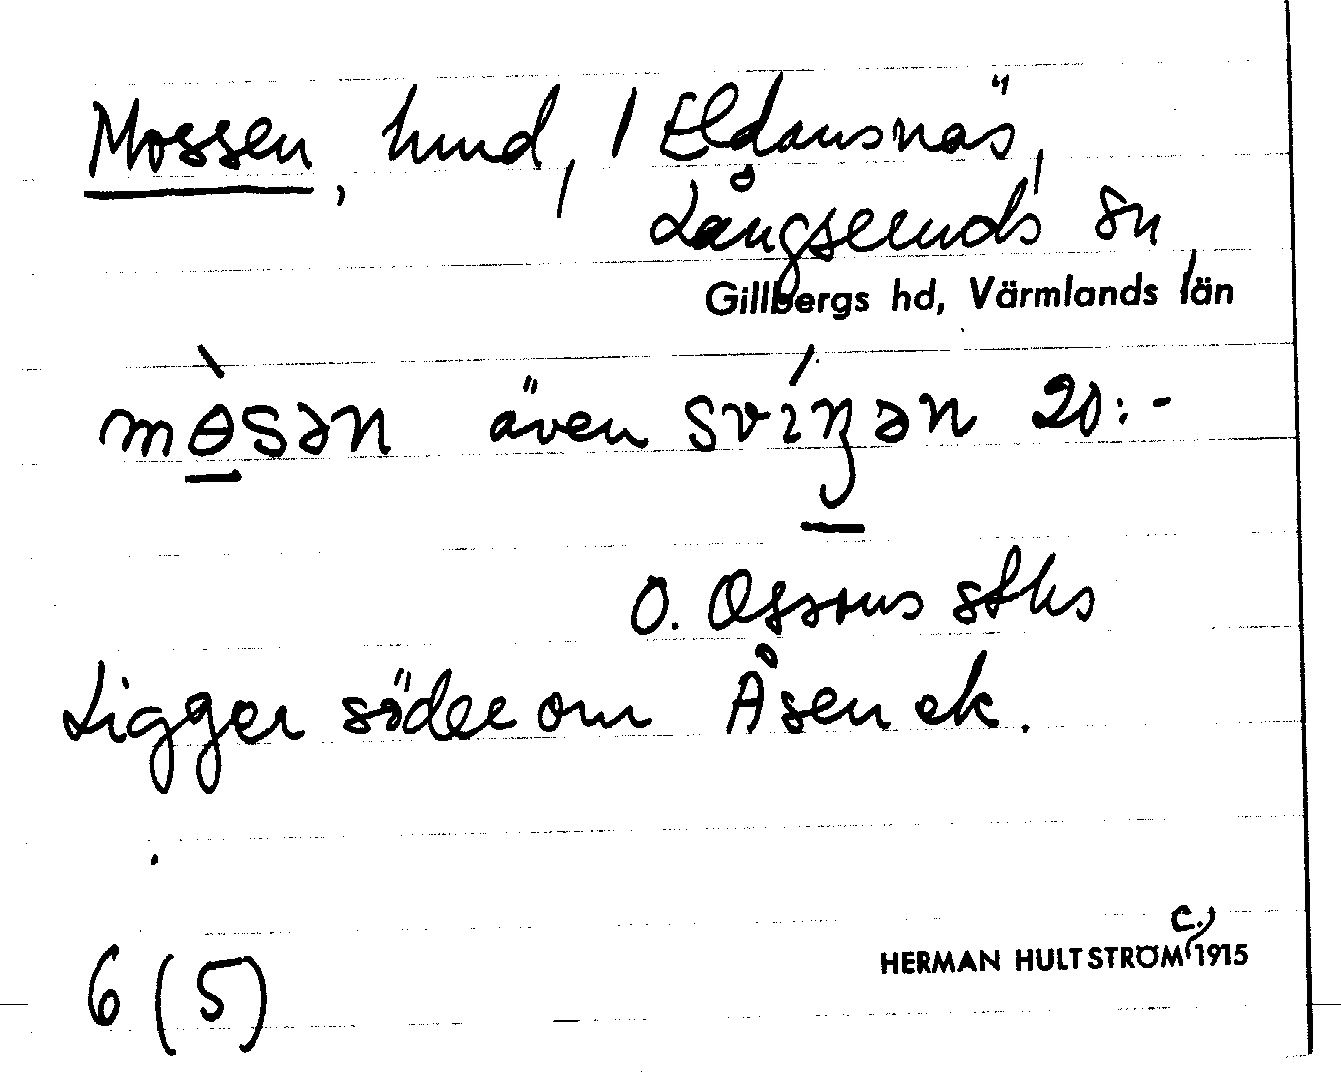 Mossen, lund, 1 Eldansnäs,
Långseruds sn,
Gillbergs hd, Värmlands län
mɵ̀sən även svíŋən 20:-
O. Ossons stks
Ligger söder om Åsen ek.
6 (5)
HERMAN HULTSTRÖM c. 1915